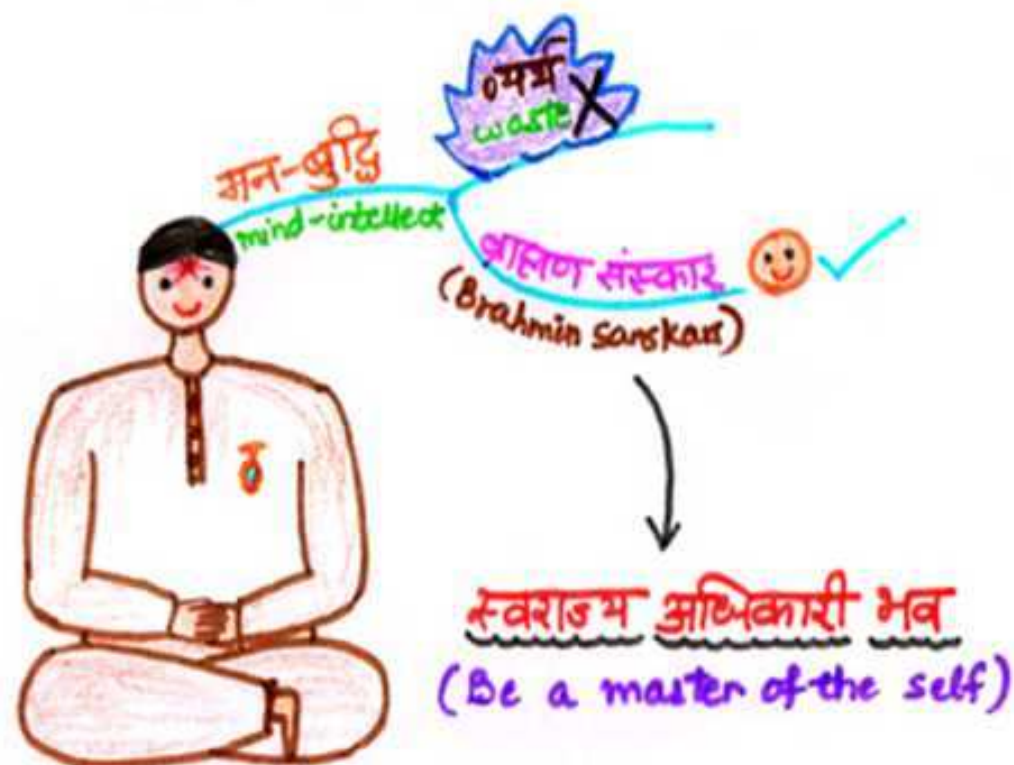 व्यर्थ
waste
मन-बुद्धि
mind-intellect
ब्राह्मण संस्कार
(Brahmin sanskars)
स्वराज्य अधिकारी भव
(Be a master of the self)